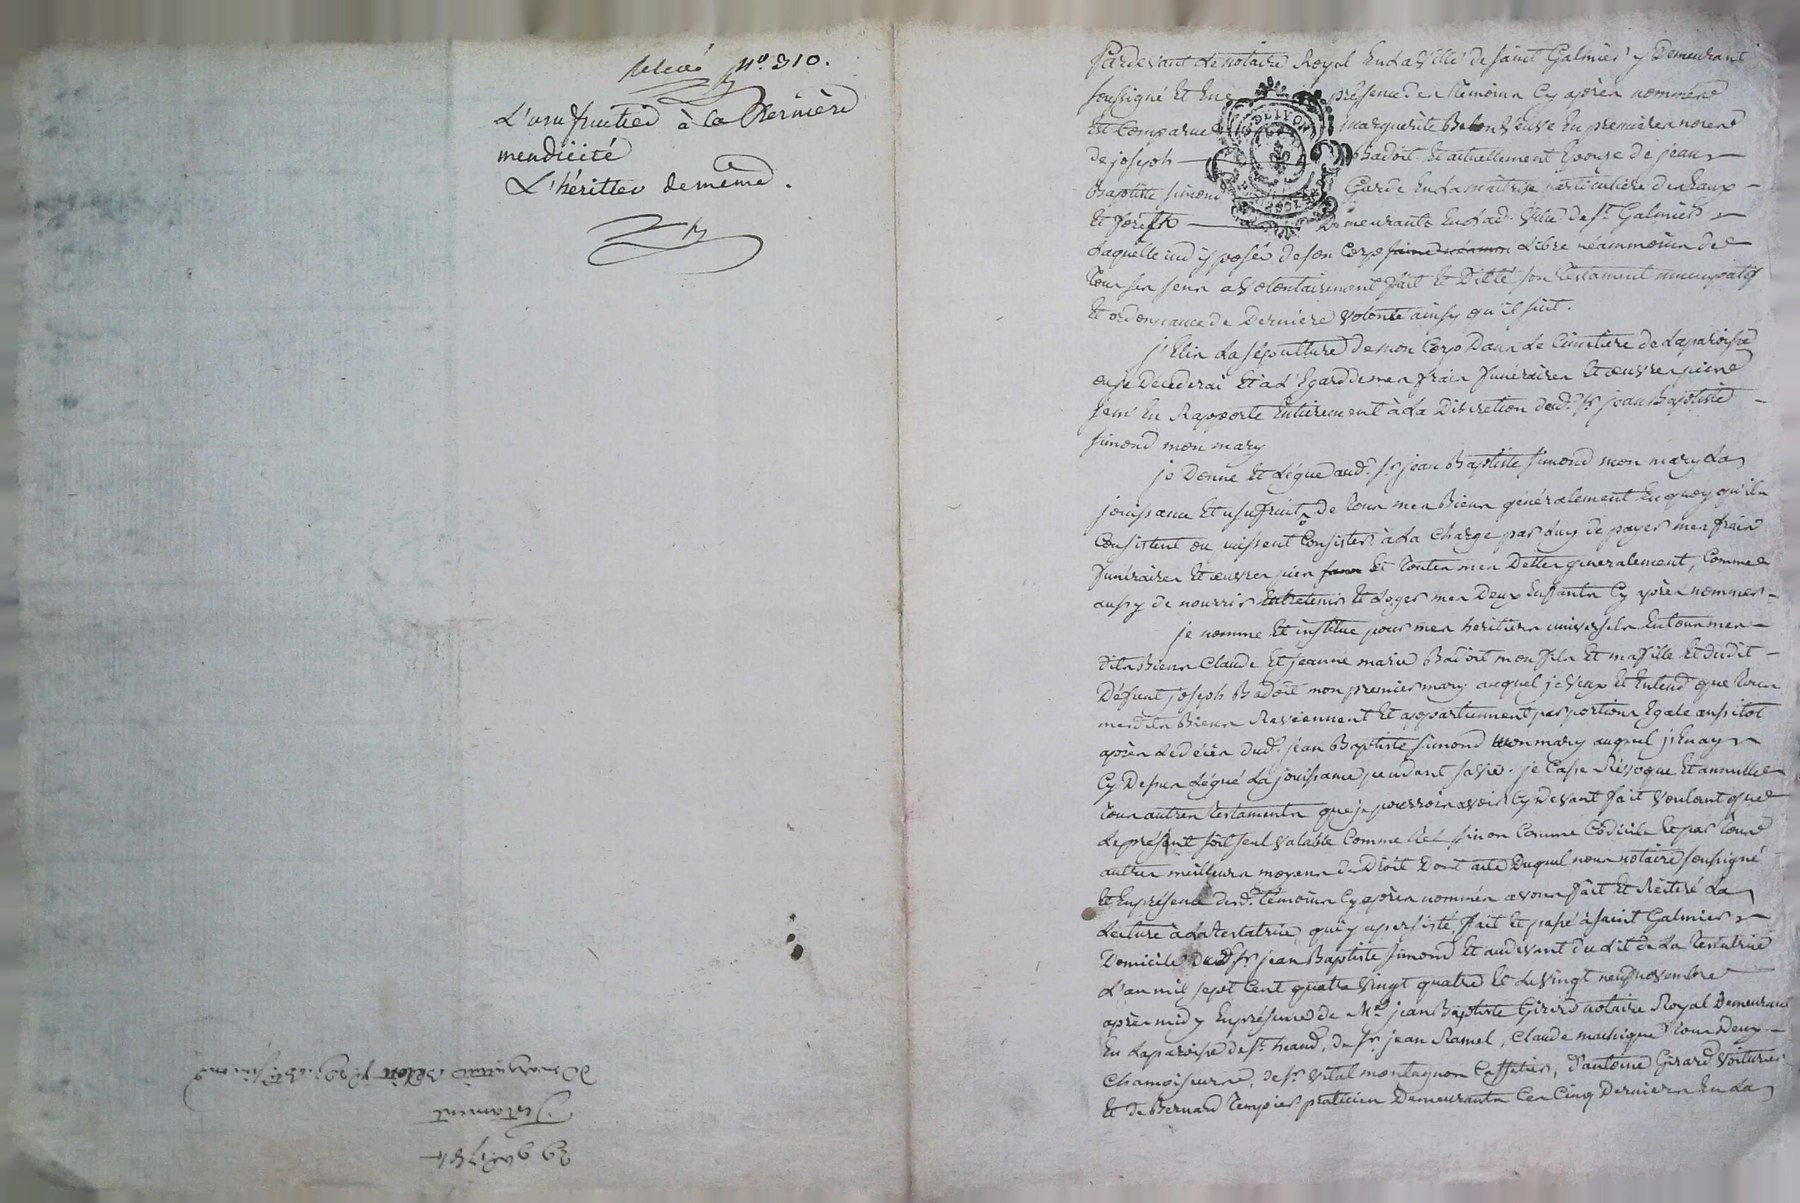 relevé N.° 310.
L'usufruitier à la Derniere
mendicité
L'héritier de meme.
29 9bre 1784
Testament
De marguerite Belon
Pardevant Le notaire Royal En La Ville de saint Galmier y Demeurant
soussigné Et En présence des témoins Cy après nommés
Est Comparue marguerite Belon Veuve En premieres noces
de joseph Badoit Et actuellement Epouse de jean
Baptiste simond Garde En La maitrise particuliere des Eaux
Et forêts Demeurants En Lad. Ville de St. Galmier
Laquelle indisposée de son Corps Libre néammoins de
Tous ses sens a Volontairement fait Et Dicté son Testament nuncupatif
Et ordonnance de Derniere Volonté ainsy qu'il suit.
j'Elis La sépulture de mon Corps Dans Le Cimetiere de La paroisse
ou je Décéderai Et à L'Egard de mes frais funéraires Et œuvres pies
Je m'en Rapporte Entierement à La Discretion dud. Sr. jean Baptiste
simond mon mary
je Donne Et Légue aud. Sr. jean Baptiste simond mon mary La
jouissance Et usufruit de Tous mes Biens généralement En quoy qu'ils
Consistent ou puissent Consister à La Charge par Luy de payer mes frais
funéraires Et œuvres pies Et Toutes mes Dettes généralement, Comme
aussy de nourrir Entretenir Et Loger mes Deux Enfants Cy après nommés
je nomme Et institue pour mes héritiers universels En tous mes
dits Biens Claude Et jeanne marie Badoit mon fils Et ma fille Et dudit
Défunt joseph Badoit mon premier mary auquel je Veux Et Entend que Tous
mesdits Biens Reviennent Et appartiennent par portions Egale aussitot
après Le décès dud. jean Baptiste simond mon mary auquel j'En ay
Cy Dessus Légué La jouissance pendant sa Vie. je Casse Révoque Et annulle
Tous autres testaments que je pourrois avoir Cy devant fait Voulant que
Le présent soit seul Valable Comme tel sinon Comme Codicile Et par Tous
autres meilleurs moyens de Droit Dont acte Duquel nous notaire soussigné
Et En présence desd. Témoins Cy après nommés avons fait Et Réitéré La
Lecture à La Testatrice qui y a persisté, fait Et passé à saint Galmier
Domicile dud. Sr. jean Baptiste simond Et audevant du Lit de La Testatrice
L'an mil sept Cent quatre Vingt quatre Et Le Vingt neuf novembre
après midy En présence de Me. jean Baptiste Girard notaire Royal Demeurant
En La paroisse de St. de Sr. jean Ramel, Claude Tous Deux
Chamoiseurs, de Sr. Vital montagnon Caffetier, d'antoine Girard Voiturier
Et de Bernard Tempier praticien Demeurants Ces Cinq Derniers En La